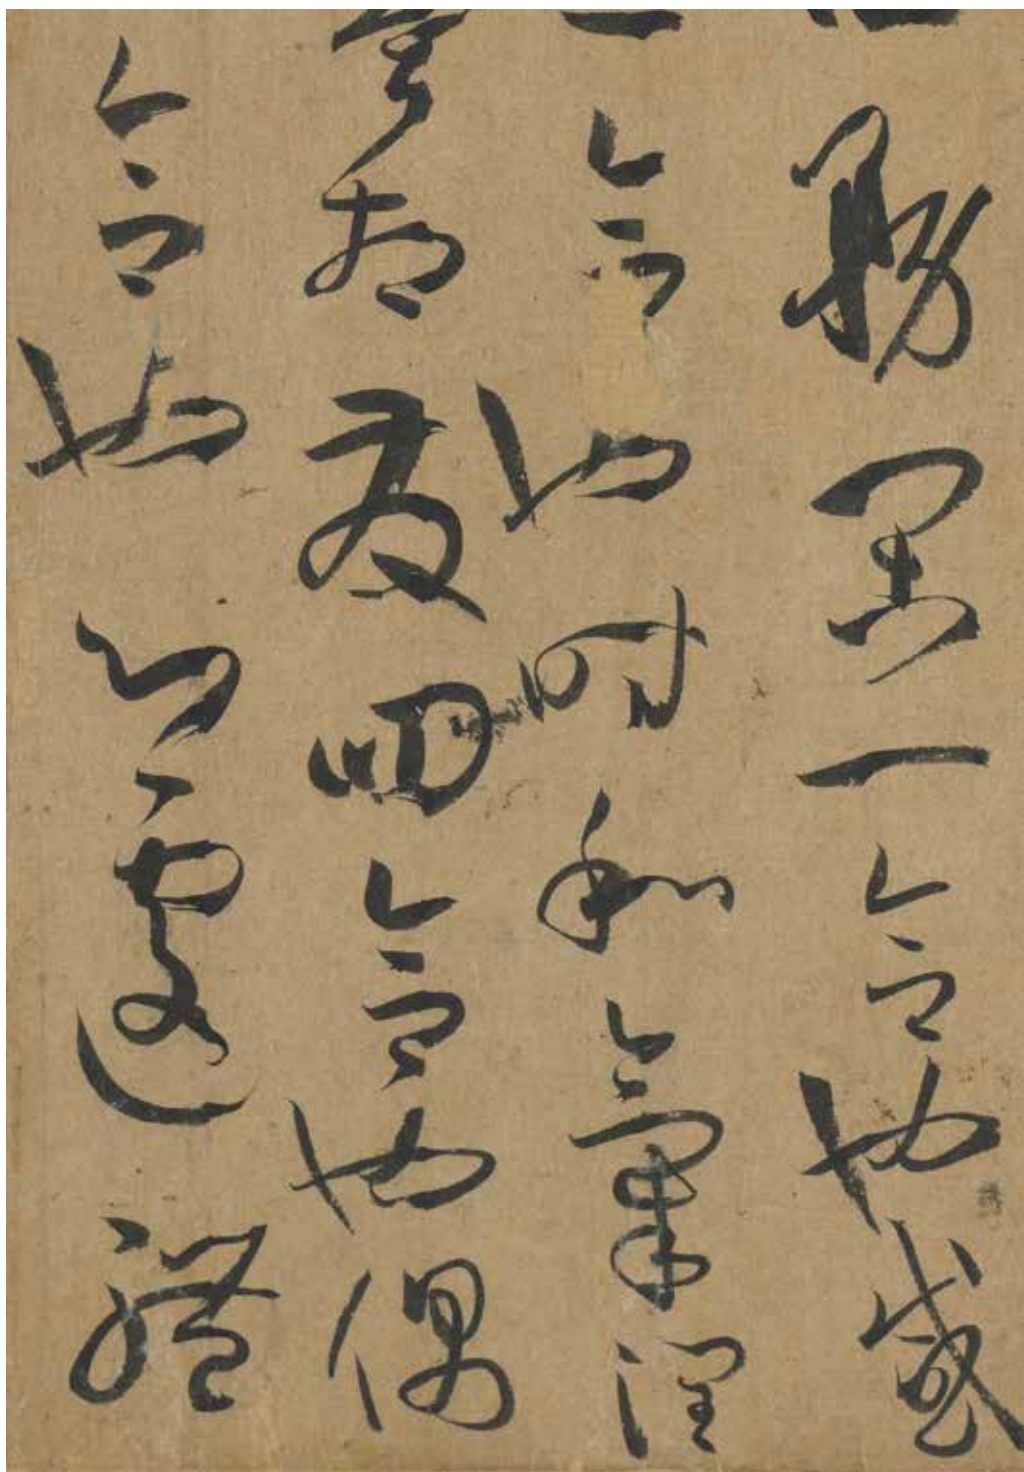 務閑一合也感
合也時和氣潤
相發四合也偶
合也心遽體